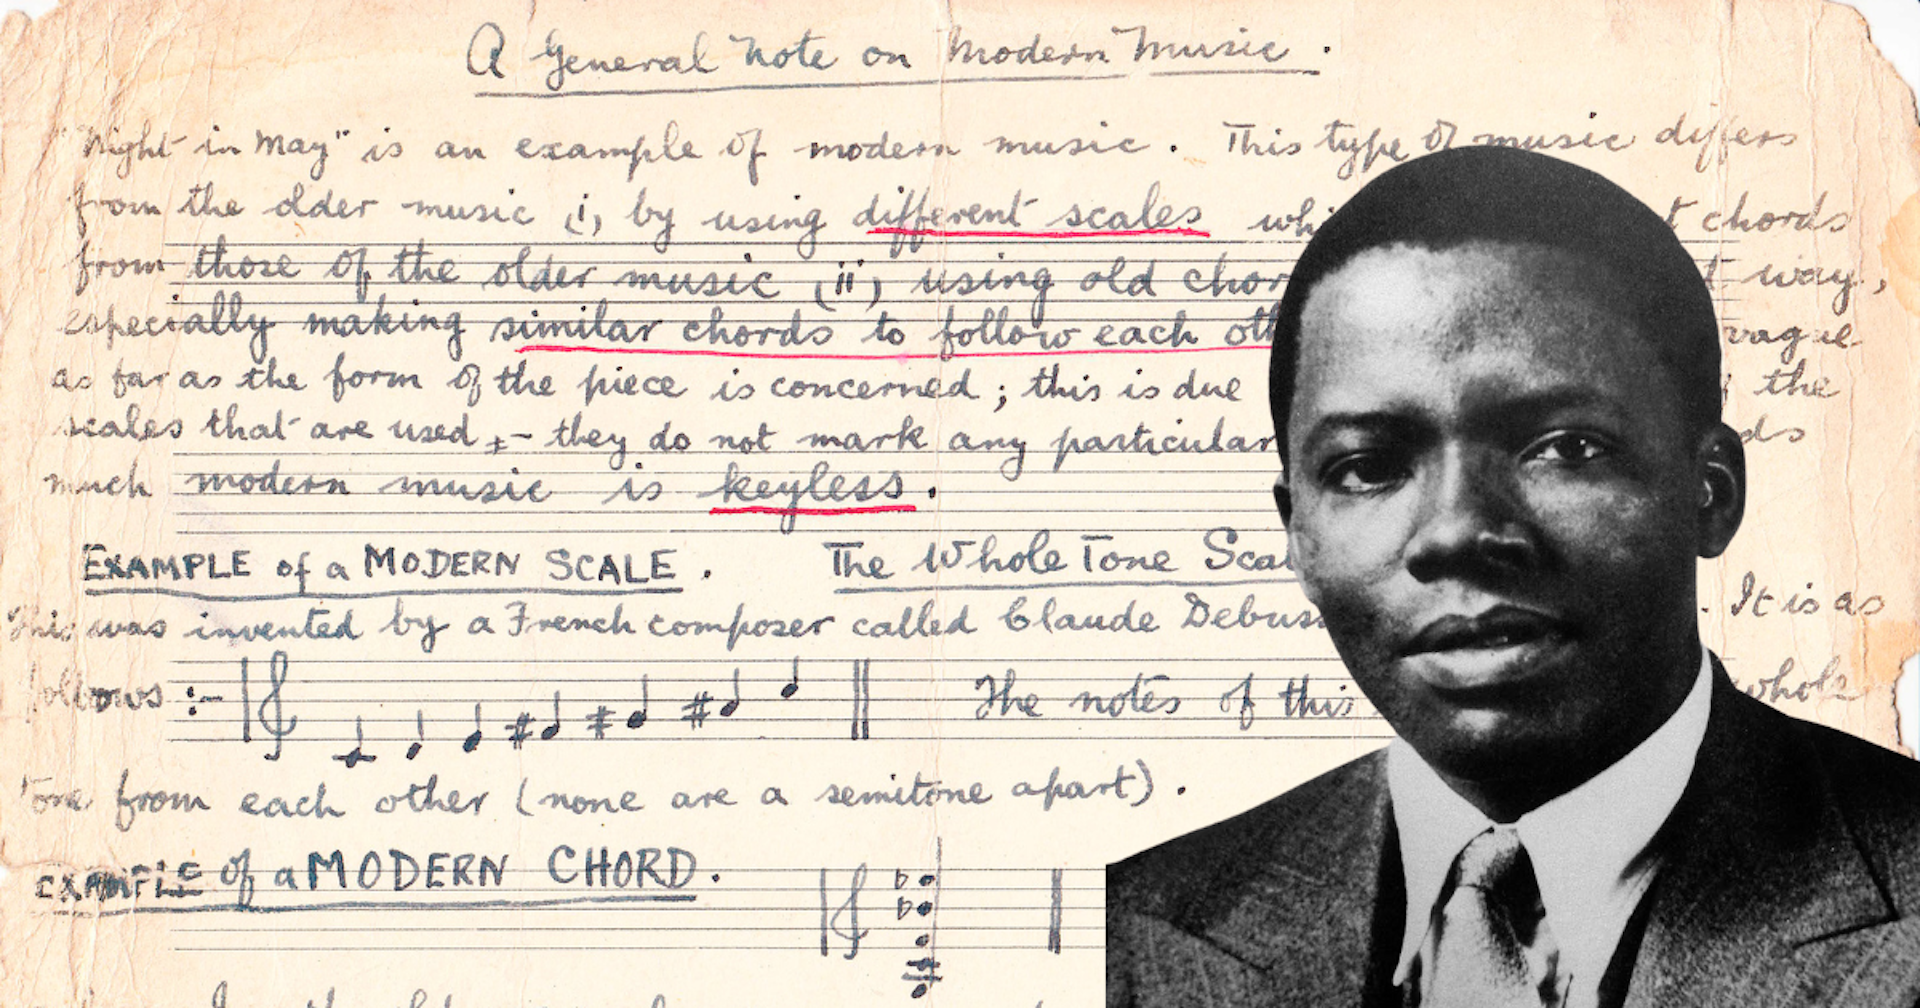 A General Note on Modern Music.
"Night in May" is an example of modern music. This type of music differs
from the older music (i) by using different scales whi t chords
from those of the older music (ii) using old chor t way,
especially making similar chords to follow each oth vague
as far as the form of the piece is concerned; this is due the
scales that are used :- they do not mark any particular ds
much modern music is keyless.
EXAMPLE of a MODERN SCALE. The Whole Tone Scal
This was invented by a French composer called Claude Debuss . It is as
follows :- The notes of this whole
Tone from each other (none are a semitone apart).
EXAMPLE of a MODERN CHORD.